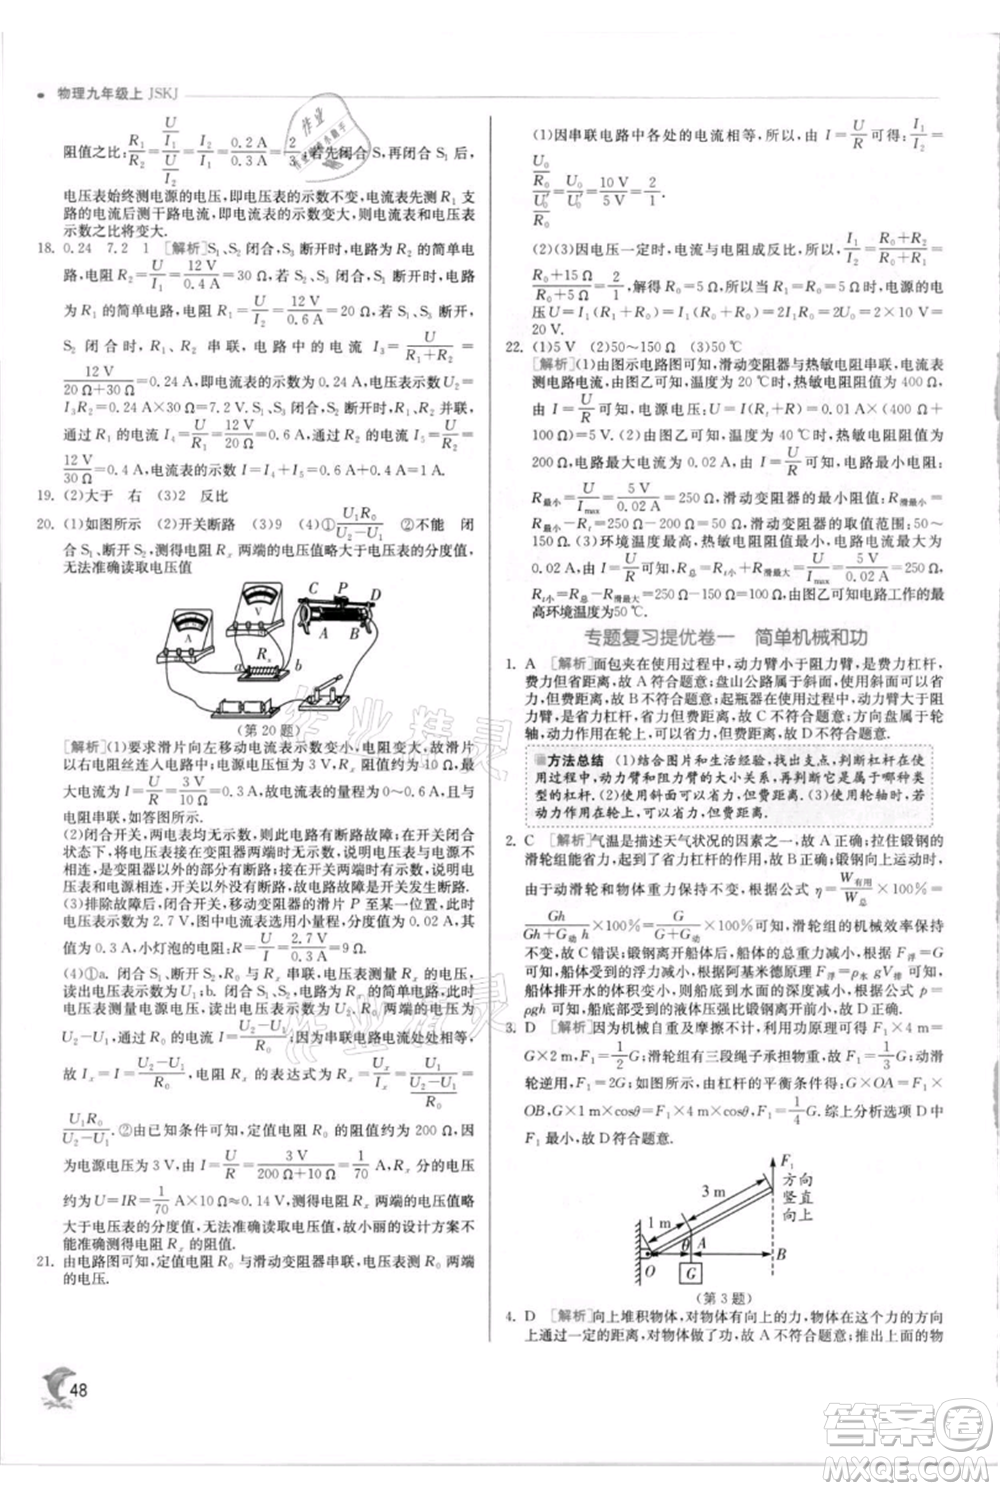 物理九年级上 JSKJ
阻值之比:R₁/R₂=(U/I₁)/(U/I₂)=I₂/I₁=0.2 A/0.3 A=2/3;若先闭合 S₁ 再闭合 S 后,
电压表始终测电源的电压,即电压表的示数不变,电流表先测 R₁ 支
路的电流后测干路电流,则电流表示数变大,则电流表和电压表
示数之比将变大.
18. 0.24 7.2 1 [解析]S₁、S₂ 闭合,S₃ 断开时,电路为 R₂ 的简单电
路,电阻 R₂=U/I₁=12 V/0.4 A=30 Ω,若 S₁、S₃ 闭合,S₂ 断开时,电路
为 R₁ 的简单电路,电阻 R₁=U/I₂=12 V/0.6 A=20 Ω;若 S₁、S₃ 断开,
S₂ 闭合时,电路中 R₁、R₂ 串联,电路中的电流 I₃=U/(R₁+R₂)=
12 V/(20 Ω+30 Ω)=0.24 A,即电流表的示数为 0.24 A,电压表示数 U₂=
I₃R₂=0.24 A×30 Ω=7.2 V. S₁、S₂、S₃ 都闭合,R₁、R₂ 并联,
通过 R₁ 的电流 I₄=U/R₁=12 V/20 Ω=0.6 A,通过 R₂ 的电流 I₅=U/R₂=
12 V/30 Ω=0.4 A,电流表的示数 I=I₄+I₅=0.6 A+0.4 A=1 A.
19. (2)大于 右 (3)2 反比
20. (1)如图所示 (2)开关断路 (3)9 (4)①U₁R₀/(U₂-U₁) ②不能 闭
合 S₁、断开 S₂,测得电阻 Rₓ 两端的电压值略大于电压表的分度值,
无法准确读取电压值
A V C P D
Rₓ a b
(第 20 题)
[解析](1)要求滑片向左移动电流表示数变小,电阻变大,故滑片
以右电阻丝连入电路中;电源电压为 3 V,故电压表选用小量程
与电阻并联,因电路最大电流约为 0.3 A,故电流表的量程为 0~0.6 A
与电阻串联,如答图所示.
(2)闭合开关,两电表均无示数,则说明电路有断路故障;在闭合开关
状态下,将电压表分别接在变阻器两端时无示数,则说明电压表与电源
不通,是变阻器以外的部分有断路;电压表接在开关两端时有示数,
则说明电压表与电源连通,则电路故障是开关发生断路.
(3)排除故障后,闭合开关,移动变阻器的滑片 P 至某一位置,此时
电压表示数为 2.7 V,图中电流表选用小量程,分度值为 0.02 A,电流
为 0.3 A,小灯泡的电阻:R=U/I=2.7 V/0.3 A=9 Ω.
(4)①a. 闭合 S₁、断开 S₂,电压表测 Rₓ 两端的电压,
读出电压表示数为 U₁;b. 闭合 S₂、断开 S₁,读出电压表示数为 U₂,
则 R₀ 两端的电压为 U₂-U₁,根据串联电路电流处处相等,
故 Iₓ=I₀=(U₂-U₁)/R₀,则 Rₓ 的表达式为 Rₓ=U₁/Iₓ=U₁/((U₂-U₁)/R₀)=
U₁R₀/(U₂-U₁).②由已知条件可知,定值电阻 R₀ 的阻值约为 200 Ω,因
为电源电压为 3 V,故 I=U/R=3 V/(200 Ω+10 Ω)=1/70 A,Rₓ 两端的电压
约为 U=IR=1/70 A×10 Ω≈0.14 V,测得电阻 Rₓ 两端的电压值略
大于电压表的分度值,无法准确读取电压值,故小丽的设计方案不
能准确测得 Rₓ 的阻值.
21. 由电路图可知,定值电阻 R₀ 与滑动变阻器串联,电压表测 R₀ 两端
的电压.
(1)因串联电路中各处的电流相等,所以,由 I=U/R 可得:I₁/I₂=
(U₀/R₀)/(U₀′/R₀)=U₀/U₀′=10 V/5 V=2/1.
(2)(3)因电压一定时,电流与电阻成反比,所以,I₁/I₂=
(R₀+15 Ω)/(R₀+5 Ω)=2/1,解得 R₀=5 Ω,当 R₁=5 Ω 时,电源的电
压 U=I₁(R₁+R₀)=I₁(R₁+R₀)=2 A×(5 Ω+5 Ω)=
20 V.
22. (1)5 V (2)50~150 Ω (3)50 ℃
[解析](1)由图示电路图可知,滑动变阻器与热敏电阻串联,电流表
测电路电流,由图乙可知,温度为 20 ℃时,热敏电阻阻值为 400 Ω,
由 I=U/R 可知,电源电压:U=I(Rₜ+R)=0.01 A×(400 Ω+
100 Ω)=5 V. (2)由图乙可知,温度为 40 ℃时,热敏电阻阻值为
200 Ω,电路最大电流为 0.02 A,由 I=U/R 可知,电路最小电阻:
R最小=U/Imax=5 V/0.02 A=250 Ω,滑动变阻器的最小阻值:R滑最小=
R最小-Rₜ=250 Ω-200 Ω=50 Ω,滑动变阻器的取值范围:50~
150 Ω. (3)环境温度最高时,热敏电阻阻值最小,电路电流最大为
0.02 A,由 I=U/R 可知,电路总电阻:R总=U/Imax=5 V/0.02 A=250 Ω,
Rₜ小=R总-R滑最大=250 Ω-150 Ω=100 Ω,由图乙可知,电路的最
高环境温度为50 ℃.
专题复习提优卷一 简单机械和功
1. A [解析]面包夹在使用过程中,动力臂小于阻力臂,是费力杠杆,
但省距离,故 A 符合题意;盘山公路属于斜面,使用斜面时,省力,
但费距离,故 B 不符合题意;起瓶器在使用过程中,动力臂大于阻
力臂,省力,但费距离,故 C 不符合题意;方向盘属于轮
轴,动力作用在轮上,省力,但费距离,故 D 不符合题意.
方法总结 (1)结合图片和生活经验,找出支点,判断杠杆在使
用过程中,动力臂和阻力臂的大小关系,再判断它是属于哪种类
型的杠杆.(2)使用斜面可以省力,但费距离.(3)使用轮轴时,若
动力作用在轮上,可以省力,但费距离.
2. C [解析]气温是描述天气状况的因素之一,故 A 正确;拉住锻钢的
滑轮组能省力,起到了省力杠杆的作用,故 B 正确;锻钢上升过程中,
由于动滑轮和物体重力不变,根据机械效率公式 η=W有用/W总=
Gh/(Gh+G动h)×100%=G/(G+G动)×100%可知,滑轮组的机械效率保持
不变,不变,故 C 错误;锻钢离开船体后,船体的总重力减小,由 F浮=G 可
知,船体受到的浮力减小,根据阿基米德原理 F浮=ρ水gV排可知,
船体排开水的体积变小,船底到水面的深度变小,根据 p=
ρgh 可知,船底部受到的水的压强比锻钢离开前小,故 D 正确.
3. D [解析]因为机械自重及摩擦不计,利用功原理可得,F₁×2 m=
G×2 m,F₁=1/2G;滑轮组有三段绳子承担重物,F₁=1/3G;动滑
轮逆用,F₁=2G;如图所示,由杠杆的平衡条件得:G×OA=F₁×
OB,G×1 m×cosθ=F₁×4 m×cosθ,F₁=1/4G.综上分析选项 D 中
F₁ 最小,故 D 符合题意.
F₁ 方向竖直向上
3 m
1 m
θ O A B
G
(第 3 题)
4. D [解析]向上堆积物体,对物体有向上的力,物体在这个力的方向
上通过一定的距离,对物体做了功,故 A 不符合题意;推出上面的物
48
作业精灵
答案圈
MXQE.COM